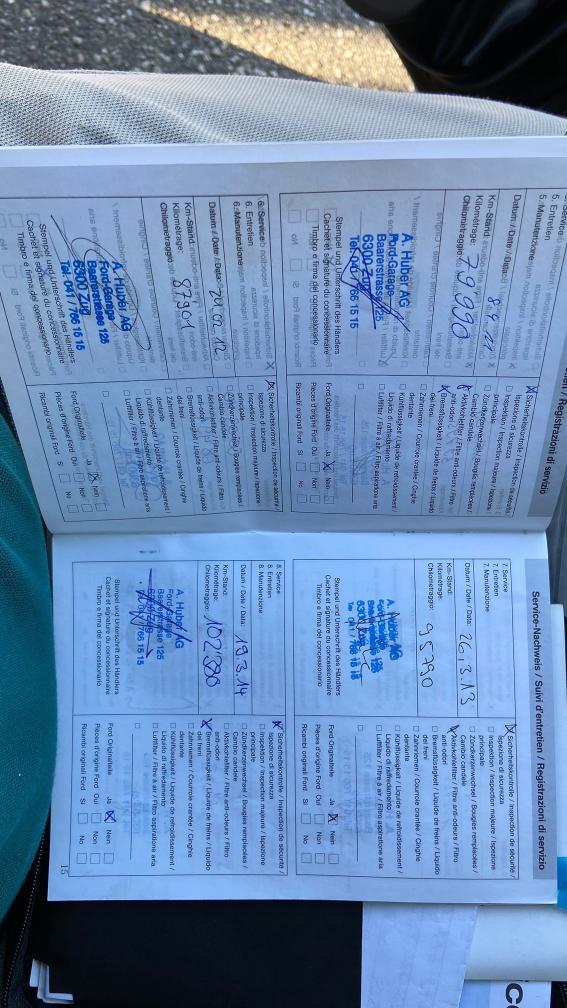 Service-Nachweis / Suivi d'entretien / Registrazioni di servizio
/ Registrazioni di servizio
5. Service
5. Entretien
5. Manutenzione
Datum / Date / Data:
Km-Stand:
Kilométrage:
Chilometraggio:
79990
Stempel und Unterschrift des Händlers
Cachet et signature du concessionnaire
Timbro e firma del concessionario
A. Huber AG
Ford-Garage
Baarerstrasse 125
6300 Zug
Tel. 041 / 766 15 15
Sicherheitskontrolle / Inspection de sécurité /
Ispezione di sicurezza
Inspektion / Inspection majeure / Ispezione
principale
Zündkerzenwechsel / Bougies remplacées /
Cambio candele
Aktivkohlefilter / Filtre anti-odeurs / Filtro
anti-odori
Bremsflüssigkeit / Liquide de freins / Liquido
dei freni
Zahnriemen / Courroie crantée / Cinghie
dentante
Kühlflüssigkeit / Liquide de refroidissement /
Liquido di raffreddamento
Luftfilter / Filtre à air / Filtre aspirazione aria
Ford Originalteile Ja Nein
Pièces d'origine Ford Oui Non
Ricambi originali Ford Si No
6. Service
6. Entretien
6. Manutenzione
Datum / Date / Data:
Km-Stand:
Kilométrage:
Chilometraggio:
Stempel und Unterschrift des Händlers
Cachet et signature du concessionnaire
Timbro e firma del concessionario
A. Huber AG
Ford-Garage
Baarerstrasse 125
6300 Zug
Tel. 041 / 766 15 15
Sicherheitskontrolle / Inspection de sécurité /
Ispezione di sicurezza
Inspektion / Inspection majeure / Ispezione
principale
Zündkerzenwechsel / Bougies remplacées /
Cambio candele
Aktivkohlefilter / Filtre anti-odeurs / Filtro
anti-odori
Bremsflüssigkeit / Liquide de freins / Liquido
dei freni
Zahnriemen / Courroie crantée / Cinghie
dentante
Kühlflüssigkeit / Liquide de refroidissement /
Liquido di raffreddamento
Luftfilter / Filtre à air / Filtre aspirazione aria
Ford Originalteile Ja Nein
Pièces d'origine Ford Oui Non
Ricambi originali Ford Si No
7. Service
7. Entretien
7. Manutenzione
Datum / Date / Data: 26.3.13
Km-Stand:
Kilométrage:
Chilometraggio: 95790
Stempel und Unterschrift des Händlers
Cachet et signature du concessionnaire
Timbro e firma del concessionario
Sicherheitskontrolle / Inspection de sécurité /
Ispezione di sicurezza
Inspektion / Inspection majeure / Ispezione
principale
Zündkerzenwechsel / Bougies remplacées /
Cambio candele
Aktivkohlefilter / Filtre anti-odeurs / Filtro
anti-odori
Bremsflüssigkeit / Liquide de freins / Liquido
dei freni
Zahnriemen / Courroie crantée / Cinghie
dentante
Kühlflüssigkeit / Liquide de refroidissement /
Liquido di raffreddamento
Luftfilter / Filtre à air / Filtre aspirazione aria
Ford Originalteile Ja Nein
Pièces d'origine Ford Oui Non
Ricambi originali Ford Si No
8. Service
8. Entretien
8. Manutenzione
Datum / Date / Data: 19.3.14
Km-Stand:
Kilométrage:
Chilometraggio:
Stempel und Unterschrift des Händlers
Cachet et signature du concessionnaire
Timbro e firma del concessionario
A. Huber AG
Ford-Garage
Baarerstrasse 125
6300 Zug
Tel. 041 / 766 15 15
Sicherheitskontrolle / Inspection de sécurité /
Ispezione di sicurezza
Inspektion / Inspection majeure / Ispezione
principale
Zündkerzenwechsel / Bougies remplacées /
Cambio candele
Aktivkohlefilter / Filtre anti-odeurs / Filtro
anti-odori
Bremsflüssigkeit / Liquide de freins / Liquido
dei freni
Zahnriemen / Courroie crantée / Cinghie
dentante
Kühlflüssigkeit / Liquide de refroidissement /
Liquido di raffreddamento
Luftfilter / Filtre à air / Filtre aspirazione aria
Ford Originalteile Ja Nein
Pièces d'origine Ford Oui Non
Ricambi originali Ford Si No
15